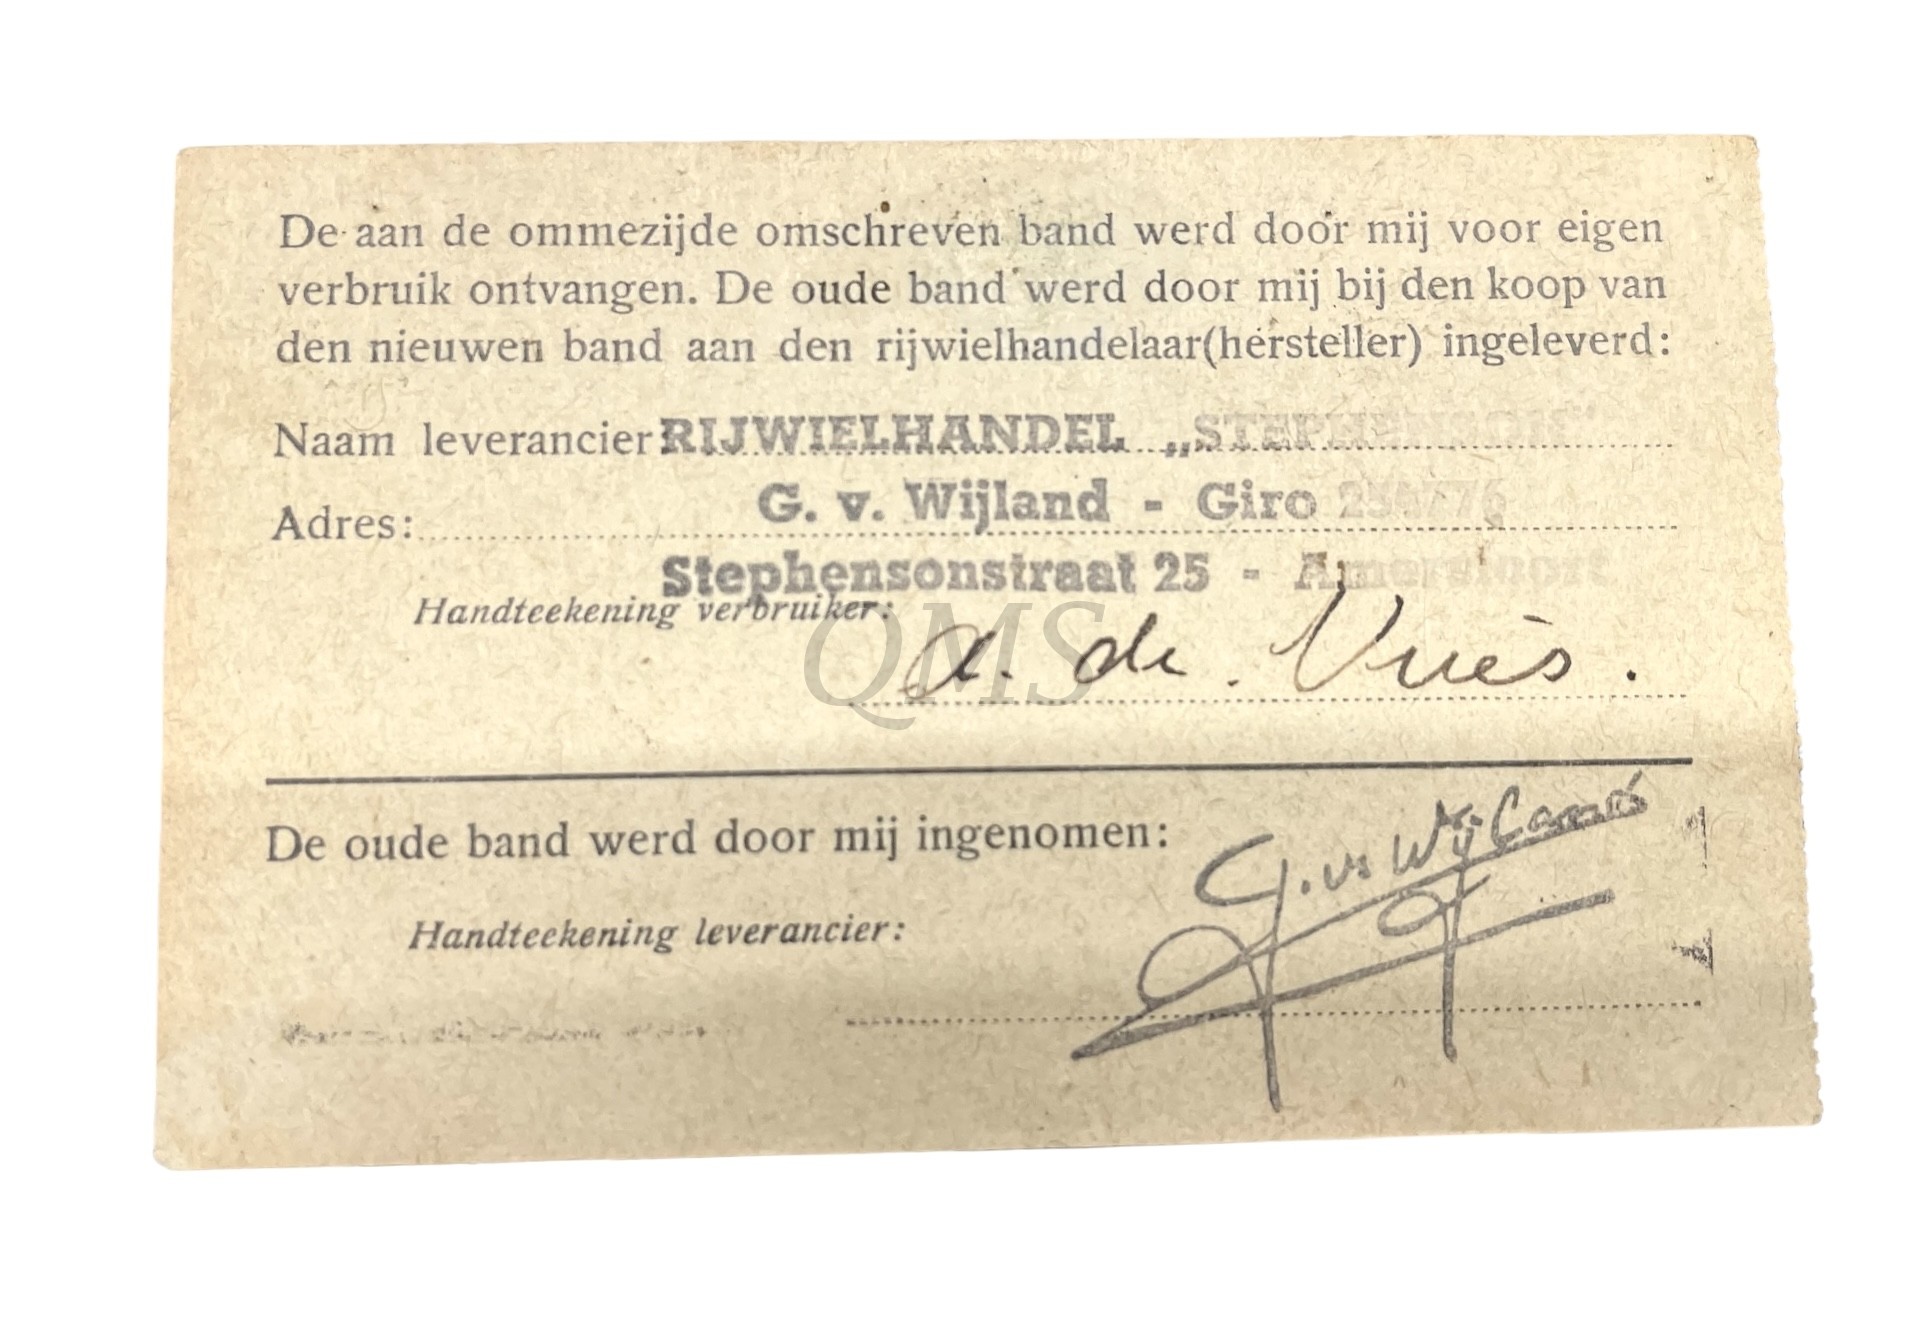 De aan de ommezijde omschreven band werd door mij voor eigen
verbruik ontvangen. De oude band werd door mij bij den koop van
den nieuwen band aan den rijwielhandelaar(hersteller) ingeleverd:
Naam leverancier RIJWIELHANDEL „STEPHENSON"
Adres: G. v. Wijland - Giro
Stephensonstraat 25 - Amersfoort
Handteekening verbruiker:
QMS
A. de Vries.
De oude band werd door mij ingenomen:
G. v. Wijland
Handteekening leverancier: